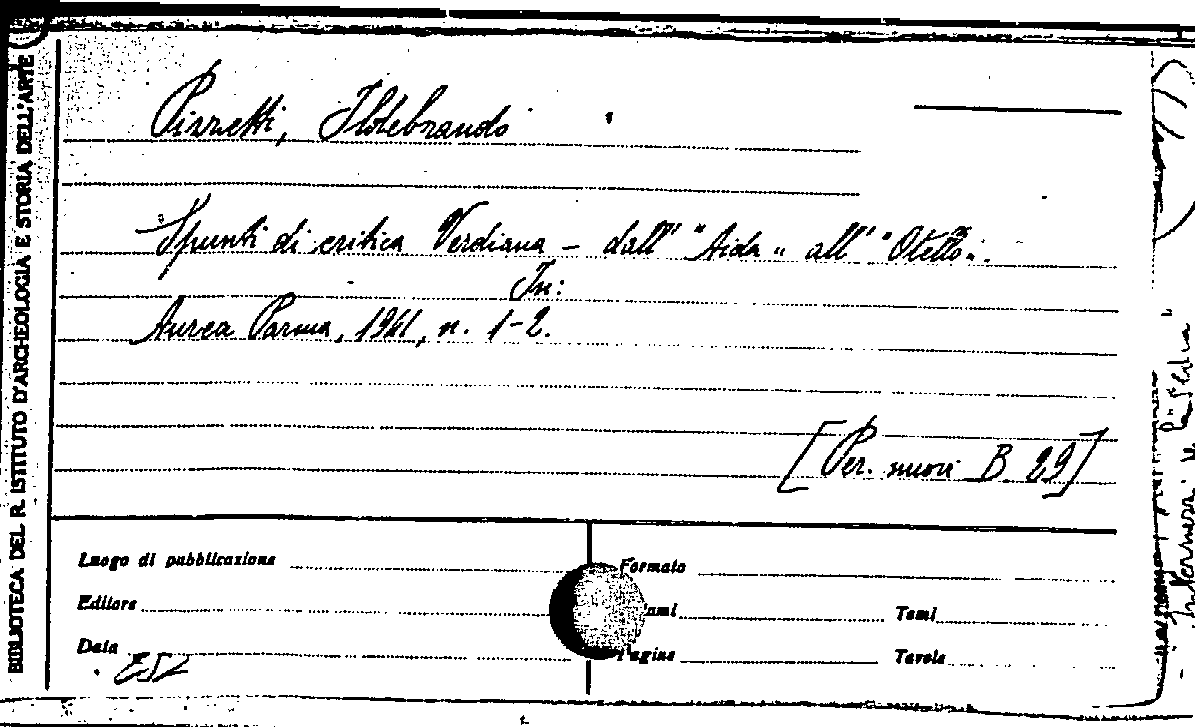 BIBLIOTECA DEL R. ISTITUTO D'ARCHEOLOGIA E STORIA DELL'ARTE
Pizzetti, Ildebrando
Spunti di critica Verdiana - dall' "Aida" all' "Otello".
In:
Aurea Parma, 1941, n. 1-2.
[Per. nuovi B. 29]
Luogo di pubblicazione
Formato
Editore
Tomi
Data
Pagine
Tavole